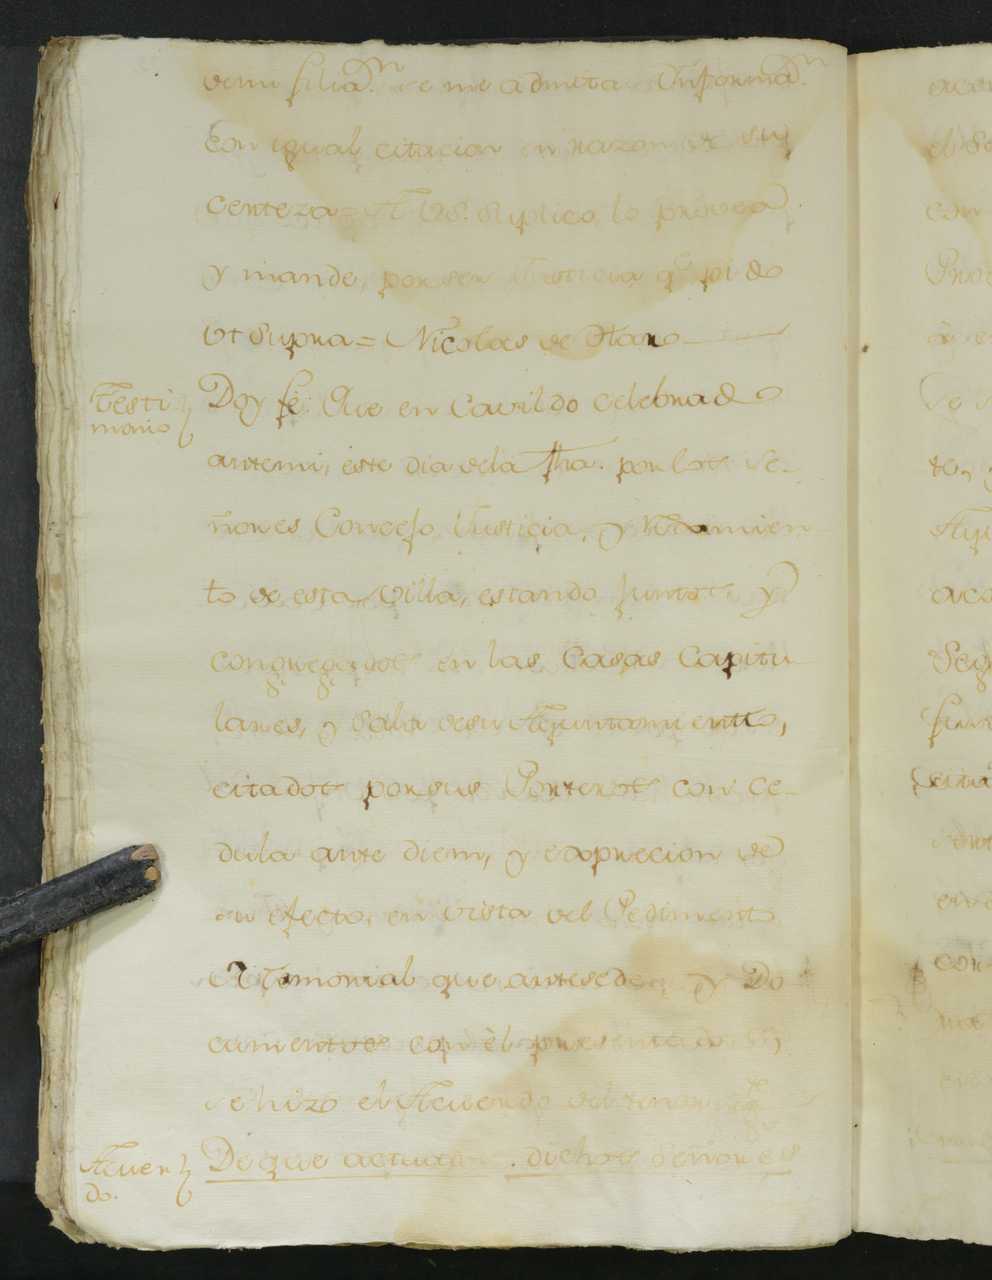 demi filiaz.n se me admita Informaz.n
con igual citacion en razon de su
Certeza = A VS. suplico lo provea
y mande, por ser Justicia q.e pido
Vt Supra = Nicolas de Otaro
Testi
monio
Doy fe: Que en Cavildo celebrado
antemi, este dia dela fha. por los Se-
ñores Concejo Justicia, y Reximien
to de esta Villa, estando juntos y
congregados en las Casas Capitu
lares, y Sala desu Ayuntamientto,
citados por sus Porteros con ce-
dula ante diem, y exprecion de
su efecto, en vista del Pedimento
que antesede, y Do
cumenttos con èl presentados
se hizo el Acuerdo del tenor sig.te
Acuer
do.
De que actuar dichos Señores